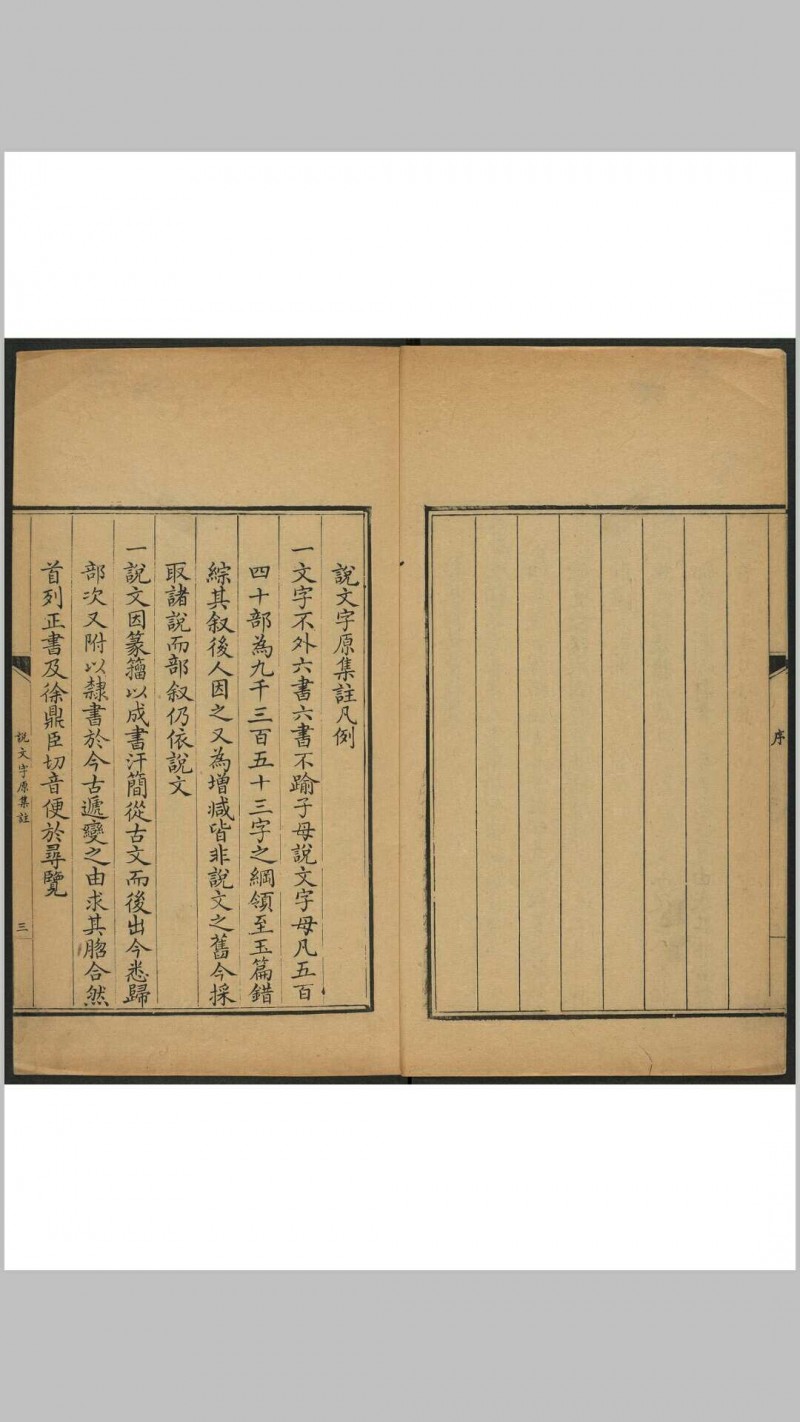 序
說文字原集註凡例
一文字不外六書六書不踰子母說文字母凡五百
四十部為九千三百五十三字之綱領至玉篇錯
綜其叙後人因之又為增減皆非說文之舊今採
取諸說而部叙仍依說文
一說文因篆籒以成書汗簡從古文而後出今悉歸
部次又附以隸書於今古遞變之由求其脗合然
首列正書及徐鼎臣切音便於尋覽
說文字原集註
三